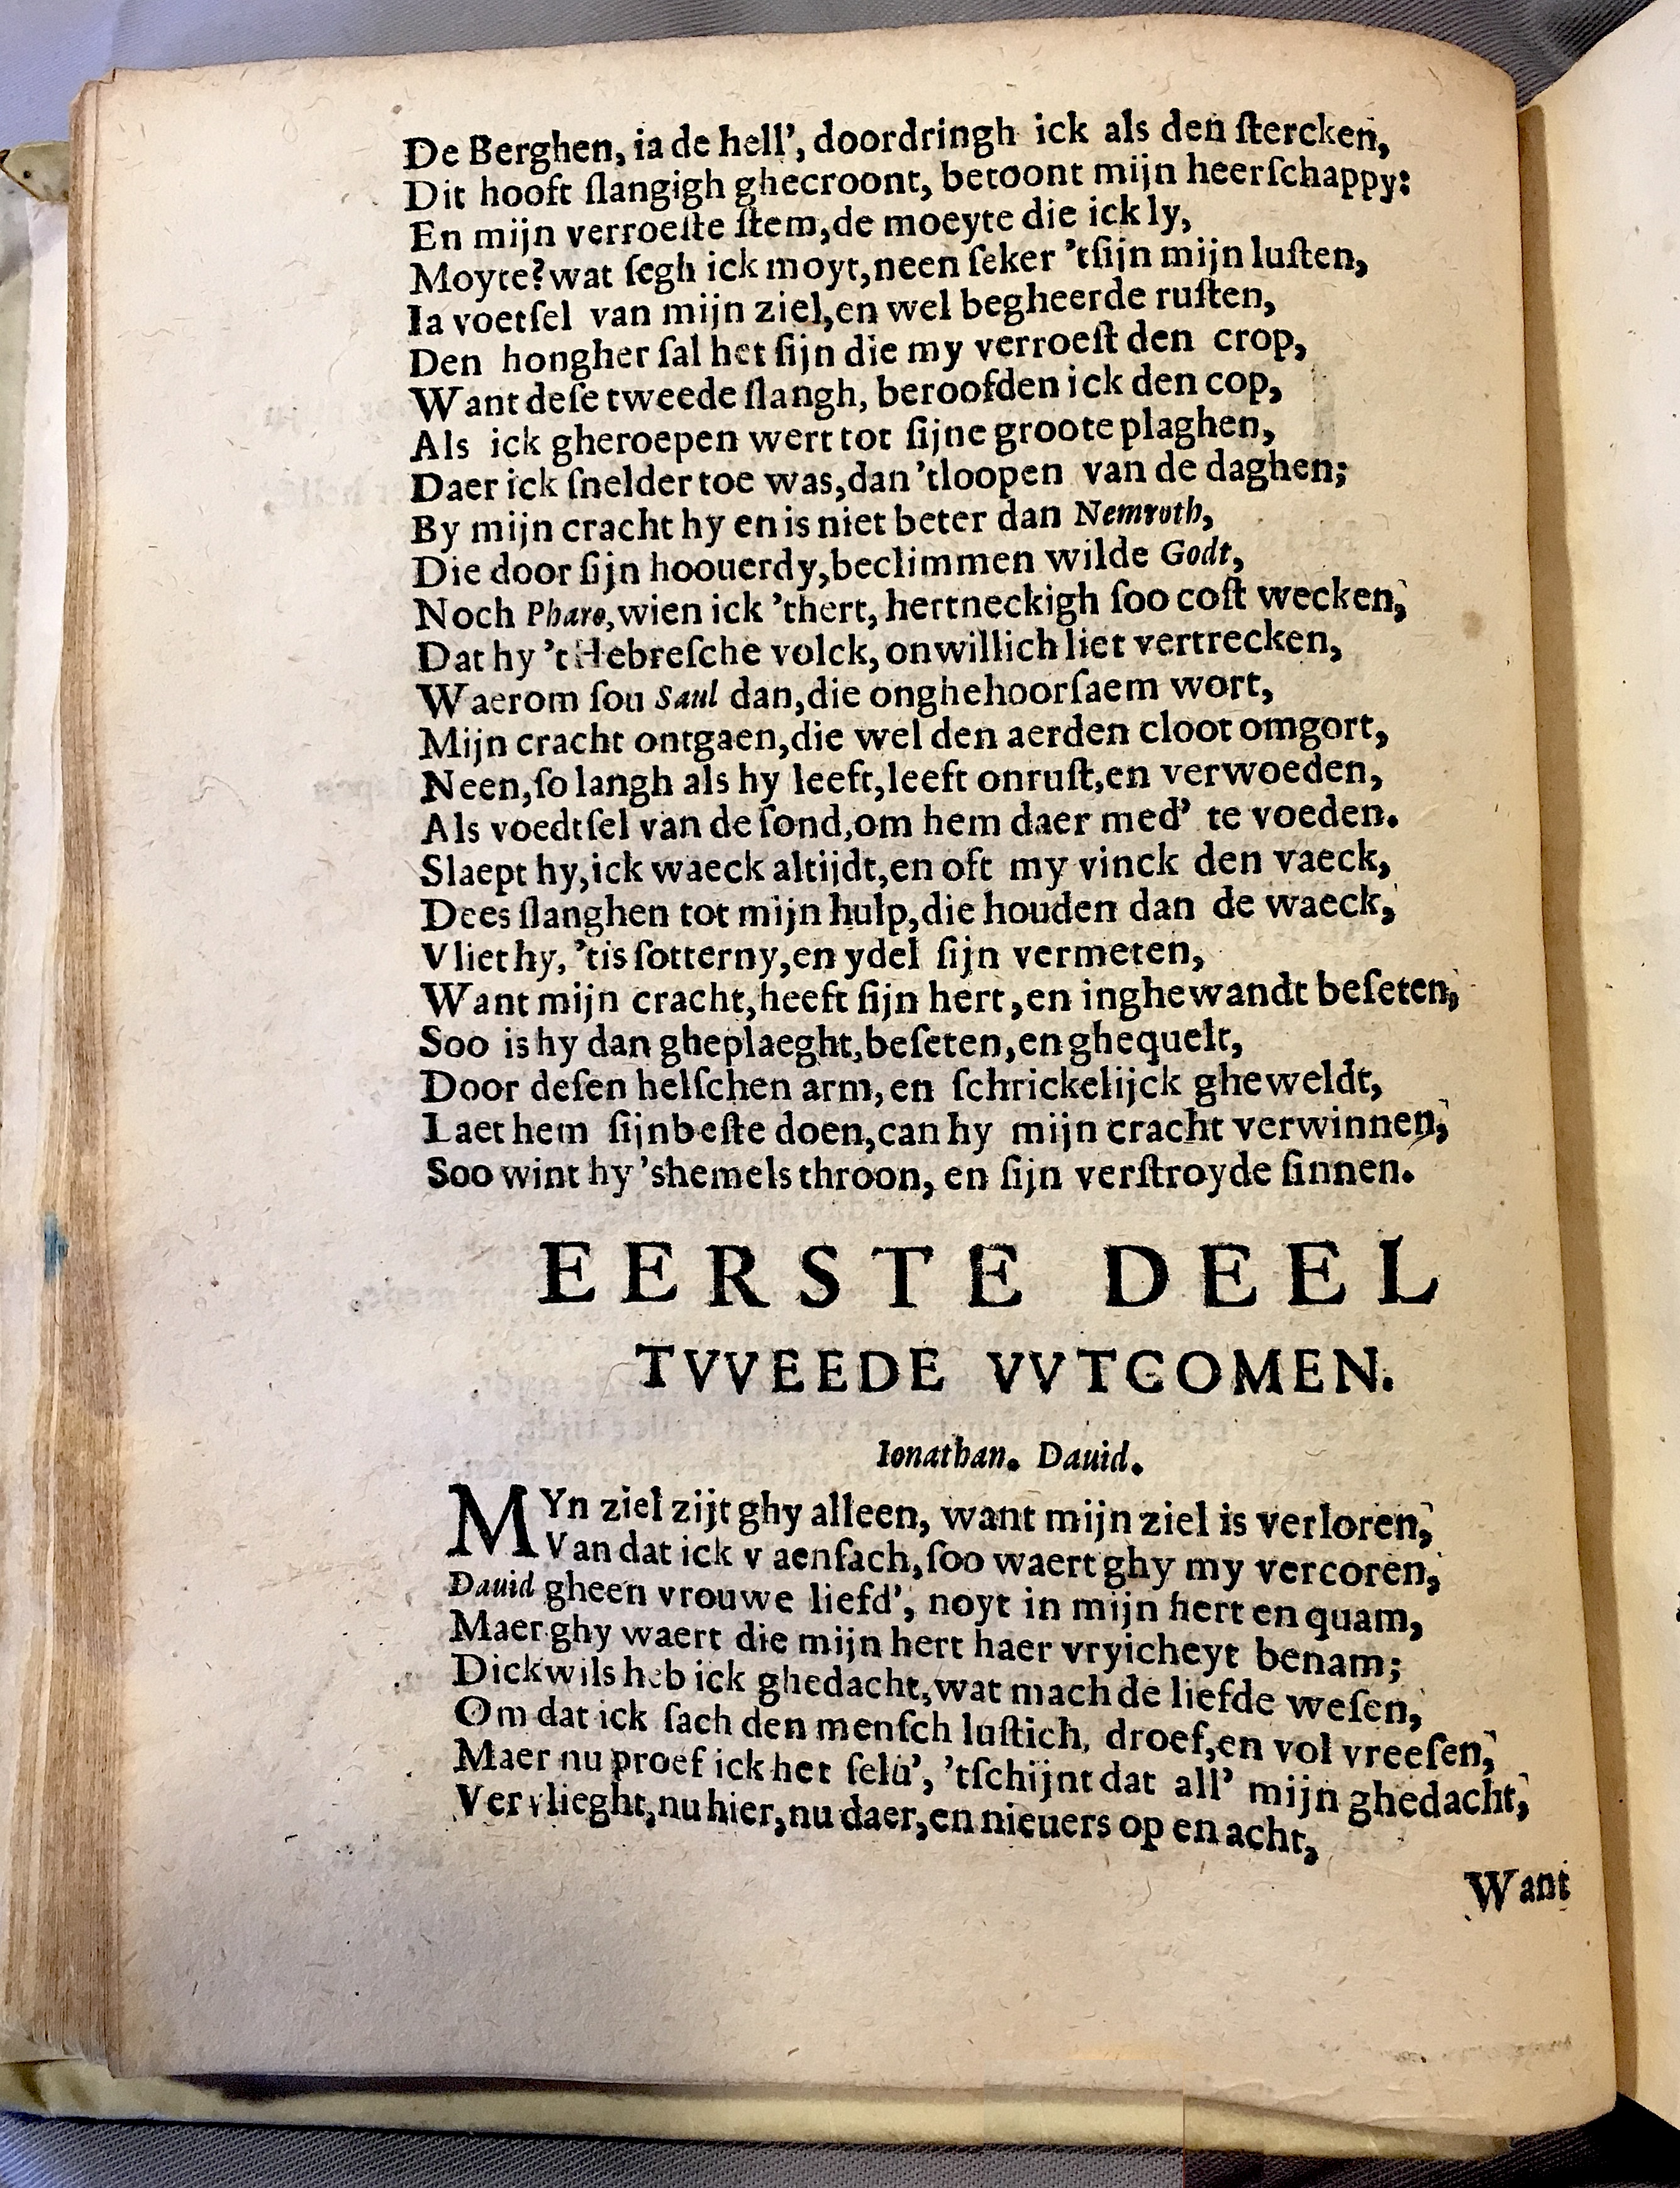 De Berghen, ia de hell', doordringh ick als den ſtercken,
Dit hooft ſlangigh ghecroont, betoont mijn heerſchappy:
En mijn verroeſte ſtem, de moeyte die ick ly,
Moyte? wat ſegh ick moyt, neen ſeker 'tſijn mijn luſten,
Ia voetſel van mijn ziel, en wel begheerde ruſten,
Den hongher ſal het ſijn die my verroeſt den crop,
Want deſe tweede ſlangh, beroofden ick den cop,
Als ick gheroepen wert tot ſijne groote plaghen,
Daer ick ſnelder toe was, dan 'tloopen van de daghen;
By mijn cracht hy en is niet beter dan Nemroth,
Die door ſijn hoouerdy, beclimmen wilde Godt,
Noch Pharo, wien ick 'thert, hertneckigh ſoo coſt wecken,
Dat hy 't Hebreſche volck, onwillich liet vertrecken,
Waerom ſou Saul dan, die onghehoorſaem wort,
Mijn cracht ontgaen, die wel den aerden cloot omgort,
Neen, ſo langh als hy leeft, leeft onruſt, en verwoeden,
Als voedtſel van de ſond, om hem daer med' te voeden.
Slaept hy, ick waeck altijdt, en oft my vinck den vaeck,
Dees ſlanghen tot mijn hulp, die houden dan de waeck,
Vliet hy, 'tis ſotterny, en ydel ſijn vermeten,
Want mijn cracht, heeft ſijn hert, en inghewandt beſeten,
Soo is hy dan gheplaeght, beſeten, en ghequelt,
Door deſen helſchen arm, en ſchrickelijck gheweldt,
Laet hem ſijn beſte doen, can hy mijn cracht verwinnen,
Soo wint hy 'shemels throon, en ſijn verſtroyde ſinnen.
EERSTE DEEL
TVVEEDE VVTCOMEN.
Ionathan. Dauid.
MYn ziel zijt ghy alleen, want mijn ziel is verloren,
Van dat ick v aenſach, ſoo waert ghy my vercoren,
Dauid gheen vrouwe liefd', noyt in mijn hert en quam,
Maer ghy waert die mijn hert haer vryicheyt benam;
Dickwils heb ick ghedacht, wat mach de liefde weſen,
Om dat ick ſach den menſch luſtich, droef, en vol vreeſen,
Maer nu proef ick het ſelu', 'tſchijnt dat all' mijn ghedacht,
Vervlieght, nu hier, nu daer, en nieuers op en acht,
Want